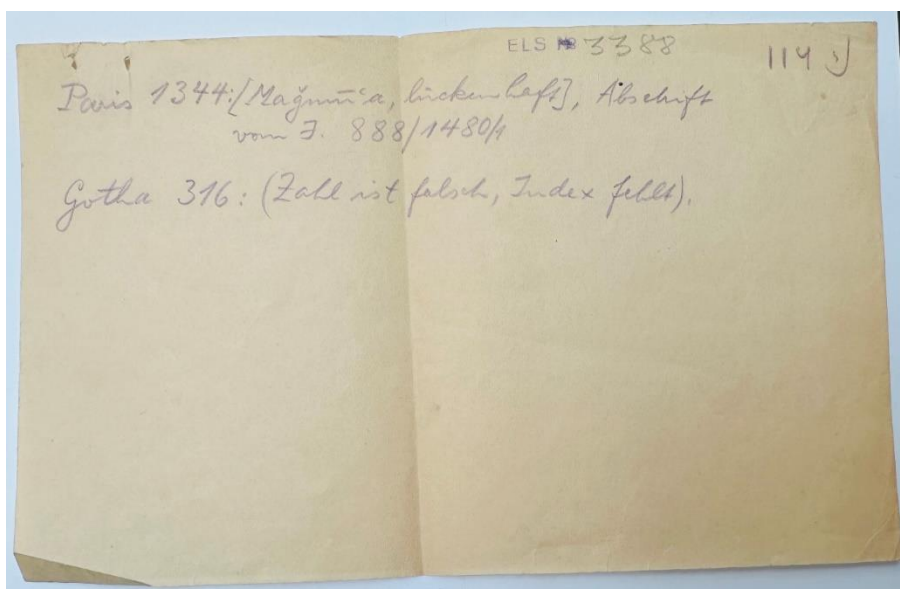 ELS 3388
114
Paris 1344: [Maǧmū‘a, lückenhaft], Abschrift
vom J. 888/1480/1
Gotha 316: (Zahl ist falsch, Index fehlt).